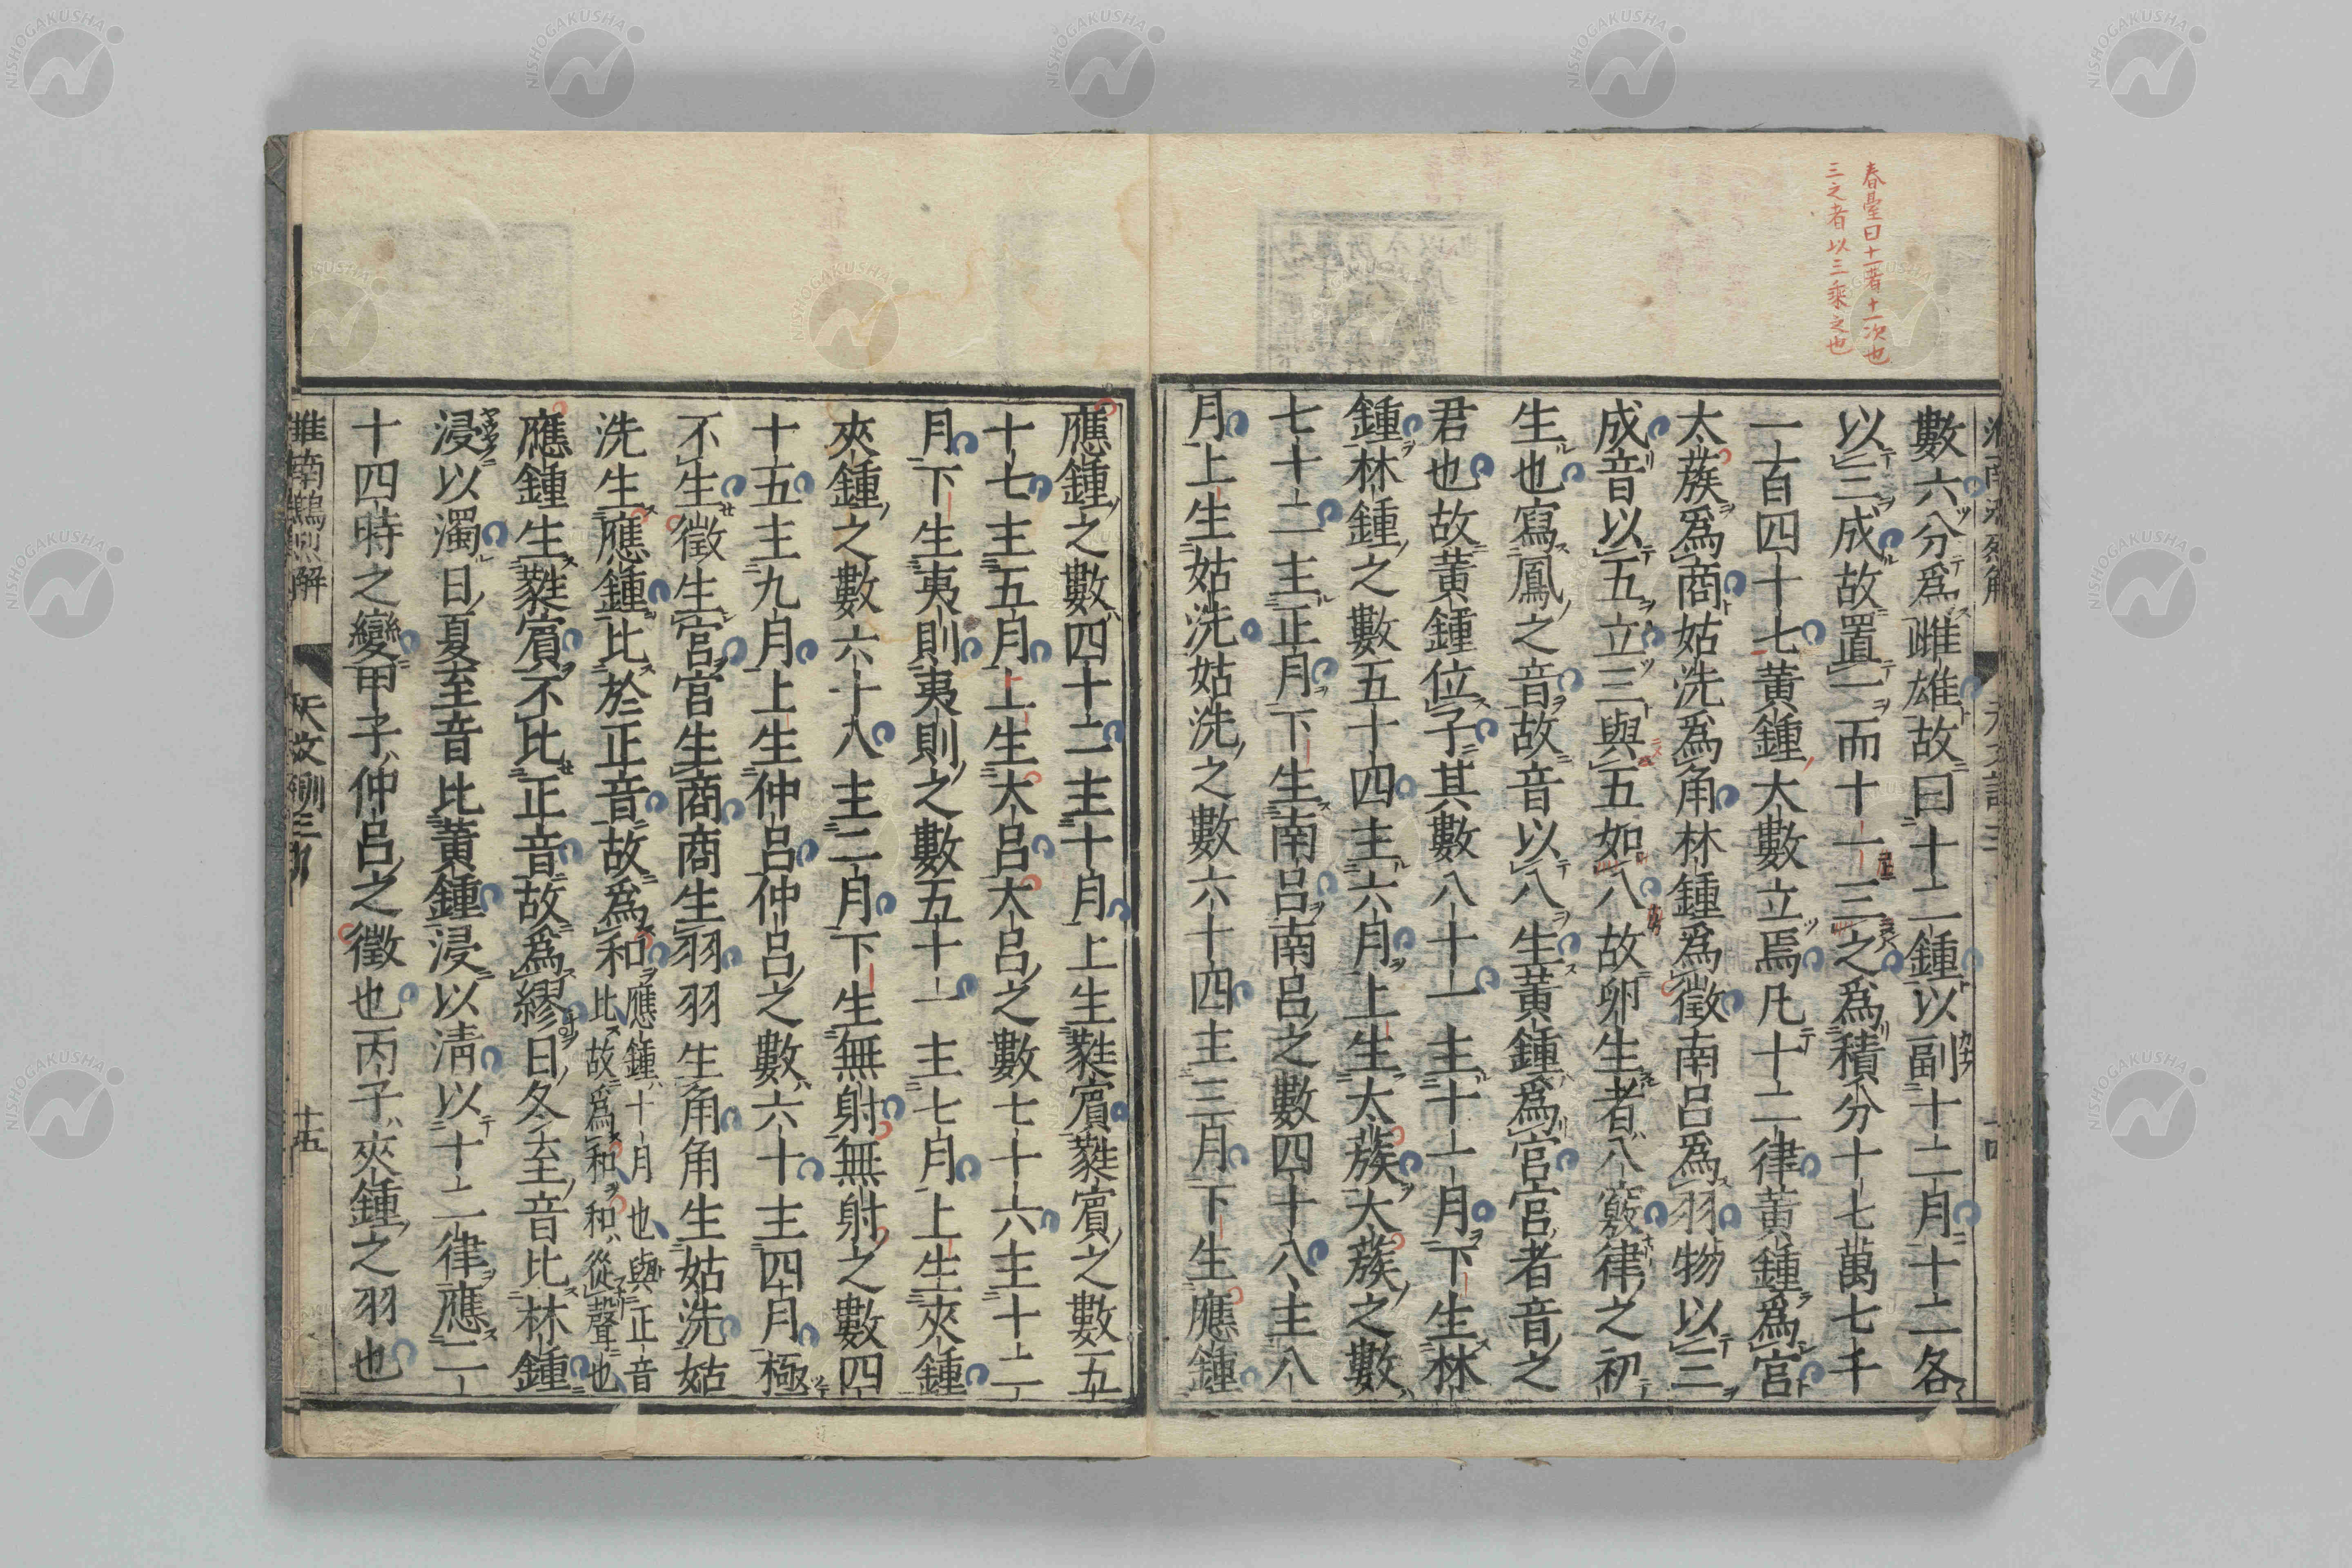 春臺曰十一者十一次也
三之者以三乘之也
數六分爲雌雄故曰十二鍾以副十二月十二各
以三成故置一而十一三之爲積分十七萬七千
一百四十七黃鍾大數立焉凡十二律黃鍾爲宮
太蔟爲商姑洗爲角林鍾爲徵南呂爲羽物以三
成音以五立三與五如八故卵生者八竅律之初
生也寫鳳之音故音以八生黃鍾爲宮宮者音之
君也故黃鍾位子其數八十一主十一月下生林
鍾林鍾之數五十四主六月上生太蔟太蔟之數
七十二主正月下生南呂南呂之數四十八主八
月上生姑洗姑洗之數六十四主三月下生應鍾
應鍾之數四十二主十月上生蕤賓蕤賓之數五
十七主五月上生大呂大呂之數七十六主十二
月下生夷則夷則之數五十一主七月上生夾鍾
夾鍾之數六十八主二月下生無射無射之數四
十五主九月上生仲呂仲呂之數六十主四月極
不生徵生宮宮生商商生羽羽生角角生姑洗姑
洗生應鍾比於正音故爲和應鍾十月也與正音
比故爲和和從聲也
應鍾生蕤賓不比正音故爲繆日冬至音比林鍾
浸以濁日夏至音比黃鍾浸以清以十二律應二
十四時之變甲子仲呂之徵也丙子夾鍾之羽也
天文訓三
十五